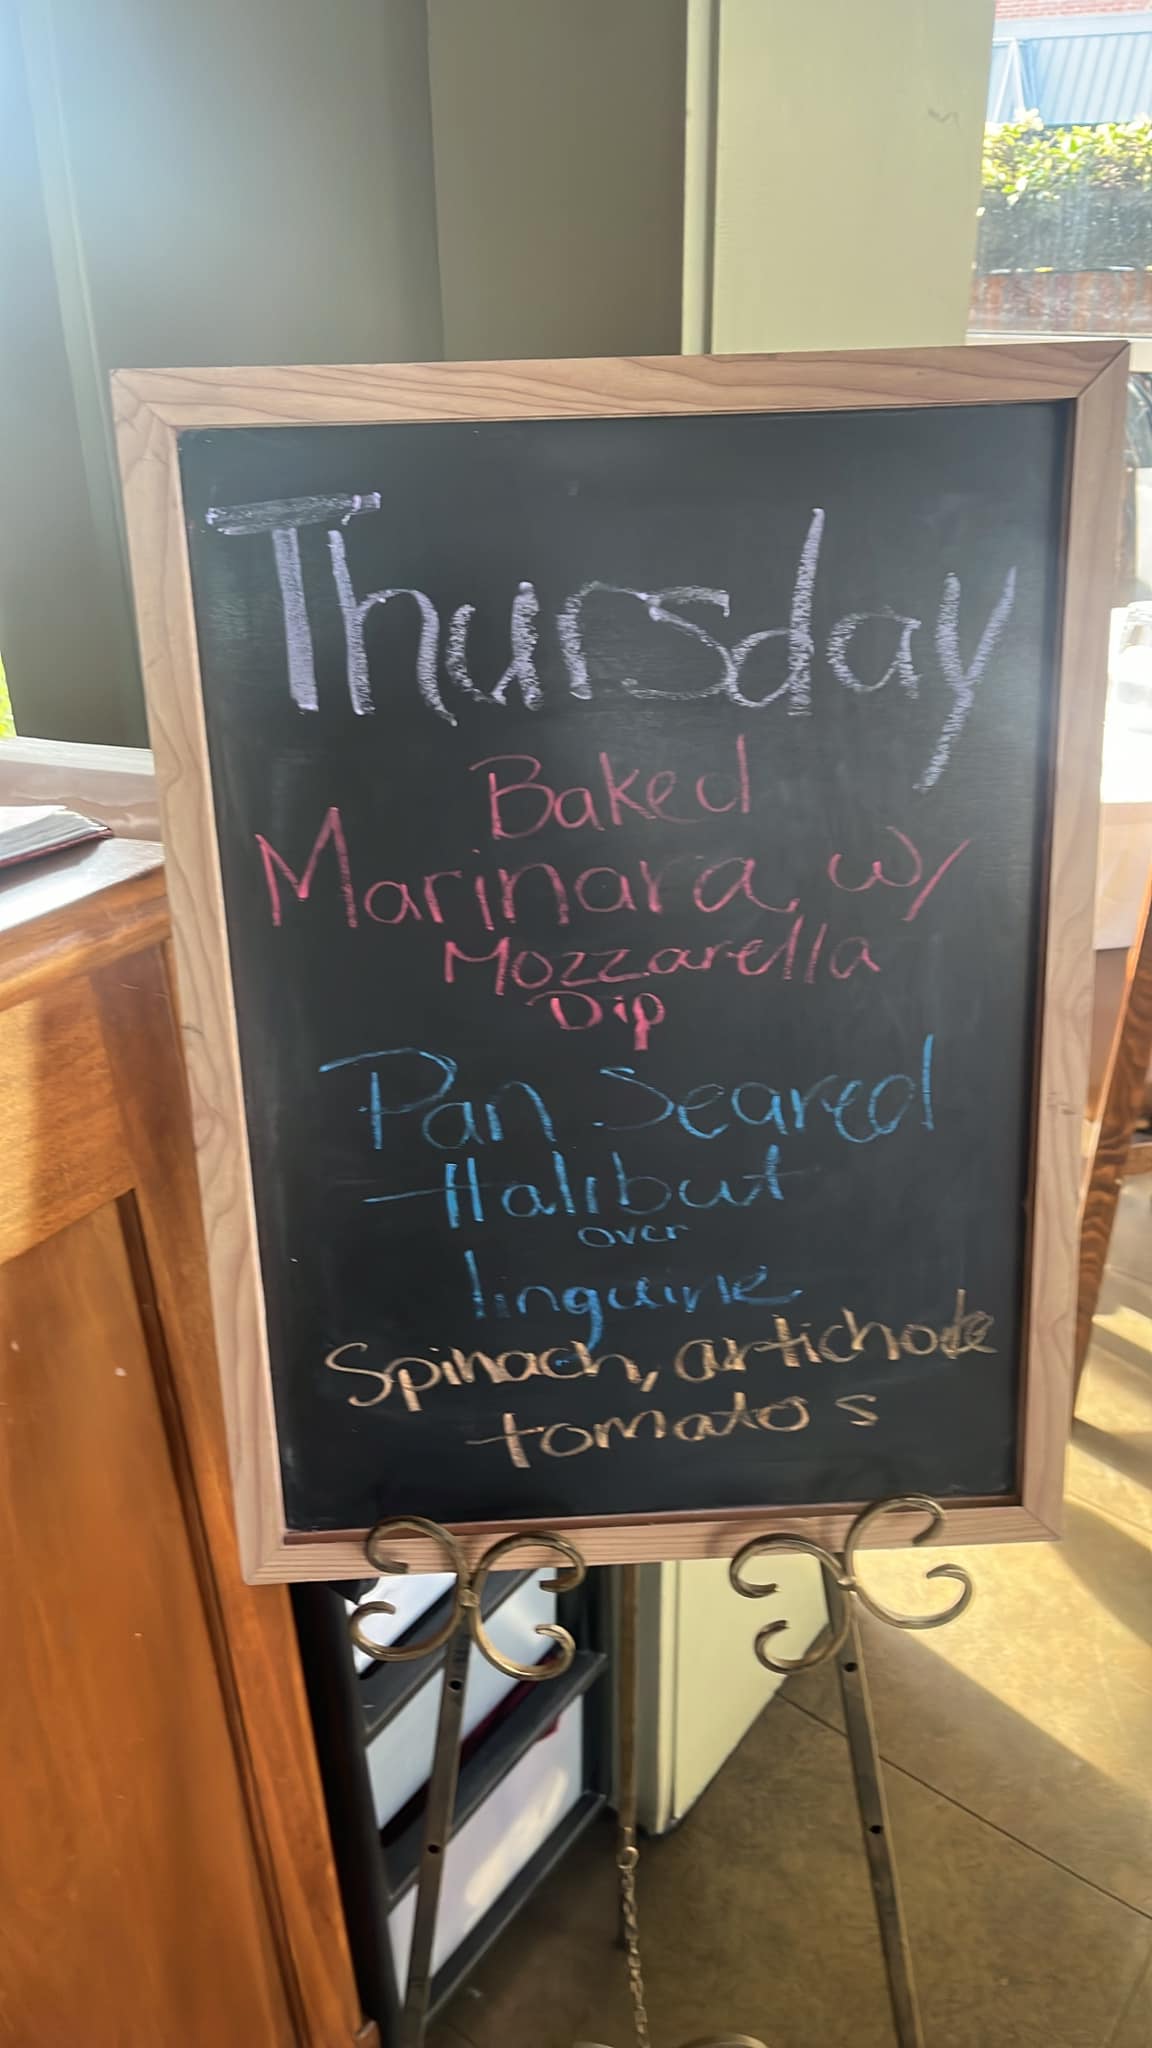 Thursday
Baked
Marinara w/
Mozzarella
Dip
Pan Seared
Halibut
over
linguine
Spinach, artichoke
tomatos